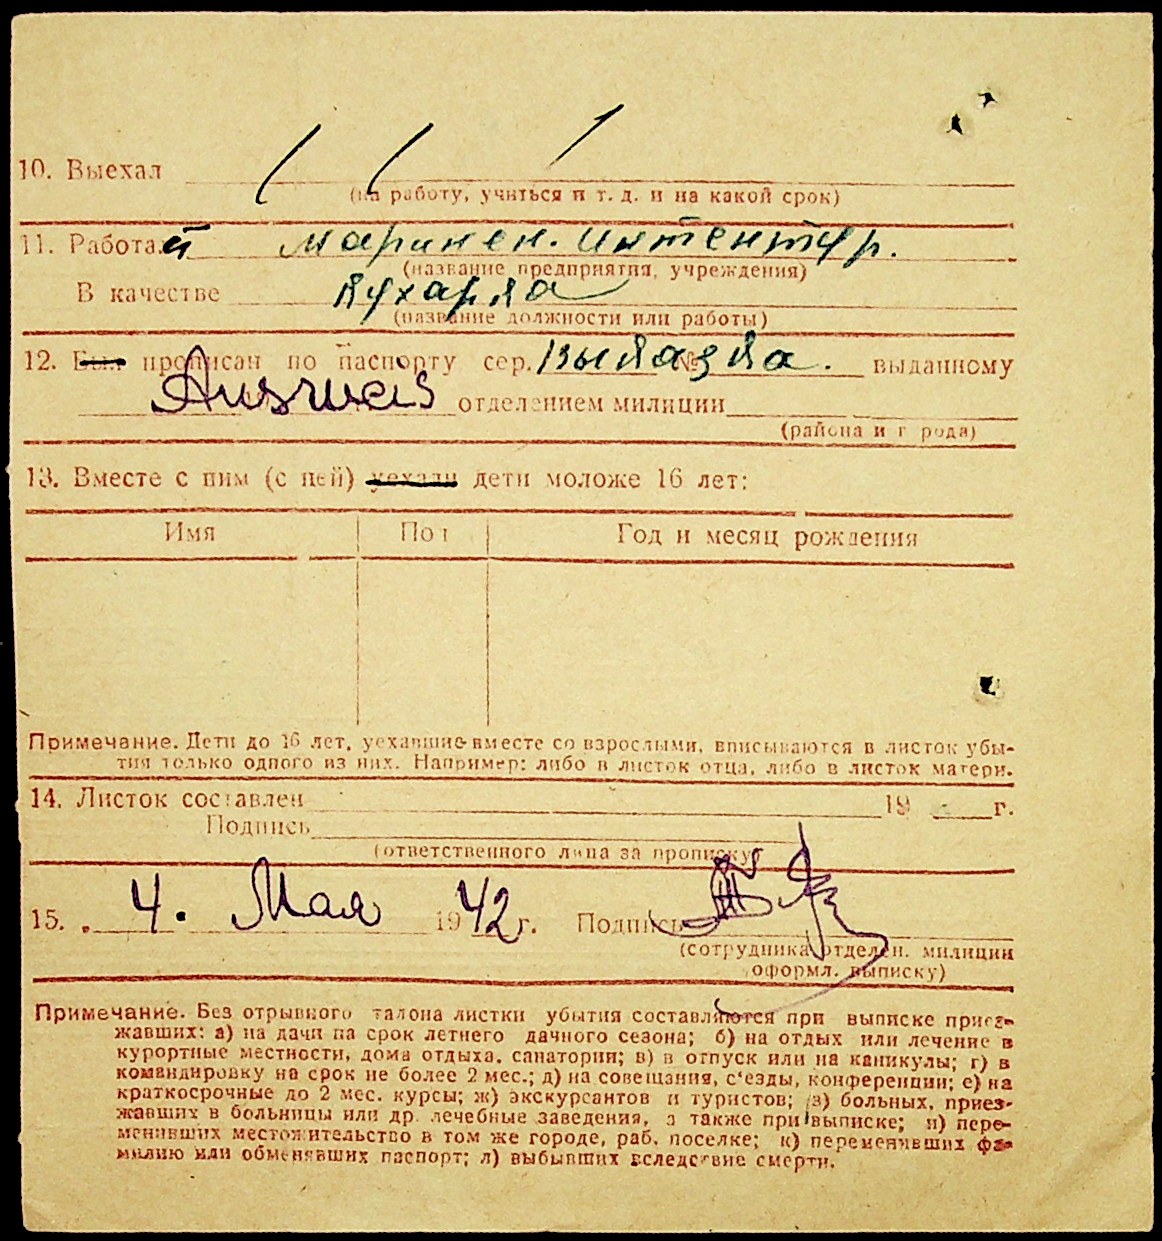 10. Выехал
(на работу, учиться и т. д. и на какой срок)
11. Работает Маринен. интентур.
(название предприятия, учреждения)
В качестве Кухарка
(название должности или работы)
12. Был прописан по паспорту сер. №. выданному
Ausweis отделением милиции
(района и города)
13. Вместе с ним (с ней) уехали дети моложе 16 лет:
Имя Пол Год и месяц рождения
Примечание. Дети до 16 лет, уехавшие вместе со взрослыми, вписываются в листок убы-
тия только одного из них. Например: либо в листок отца, либо в листок матери.
14. Листок составлен 19 г.
Подпись
(ответственного лица за прописку)
15. 4. Мая 1942 г. Подпись
(сотрудника отделен. милиции
оформл. выписку)
Примечание. Без отрывного талона листки убытия составляются при выписке приез-
жавших: а) на дачи на срок летнего дачного сезона; б) на отдых или лечение в
курортные местности, дома отдыха, санатории; в) в отпуск или на каникулы; г) в
командировку на срок не более 2 мес.; д) на совещания, с'езды, конференции; е) на
краткосрочные до 2 мес. курсы; ж) экскурсантов и туристов; з) больных, приез-
жавших в больницы или др. лечебные заведения, а также при выписке; и) пере-
менивших местожительство в том же городе, раб. поселке; к) переменивших фа-
милию или обменявших паспорт; л) выбывших вследствие смерти.